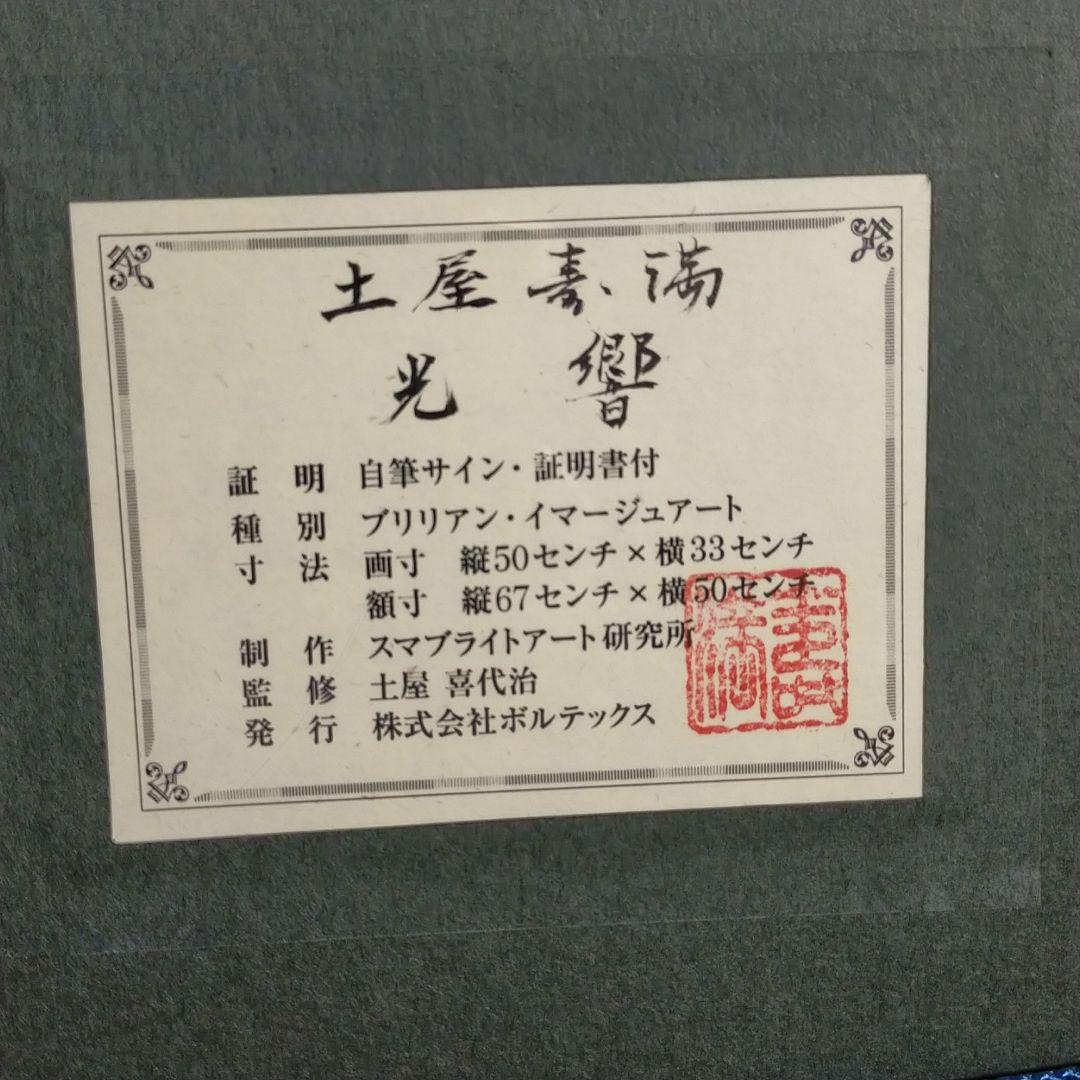 土屋寿満
光 響
証 明 自筆サイン・証明書付
種 別 ブリリアン・イマージュアート
寸 法 画寸 縦50センチ×横33センチ
額寸 縦67センチ×横50センチ
制 作 スマブライトアート研究所
監 修 土屋 喜代治
発 行 株式会社ボルテックス